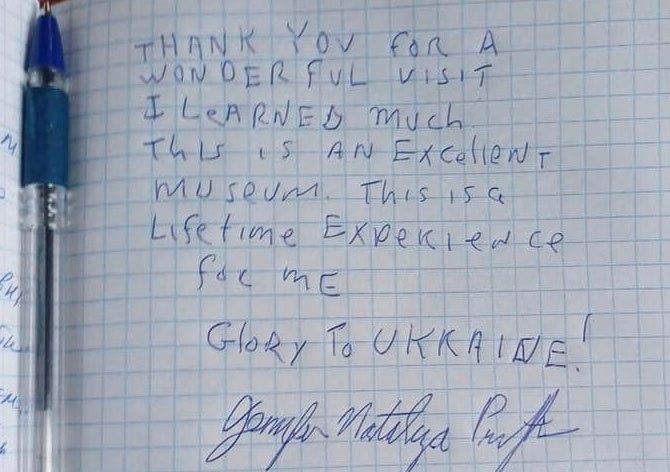 THANK YOU FOR A
WONDERFUL VISIT
I LeARNED much.
This is AN Excellent
museum. This is a
Lifetime Experience
for mE
Glory To UKRAINE!
Natalya